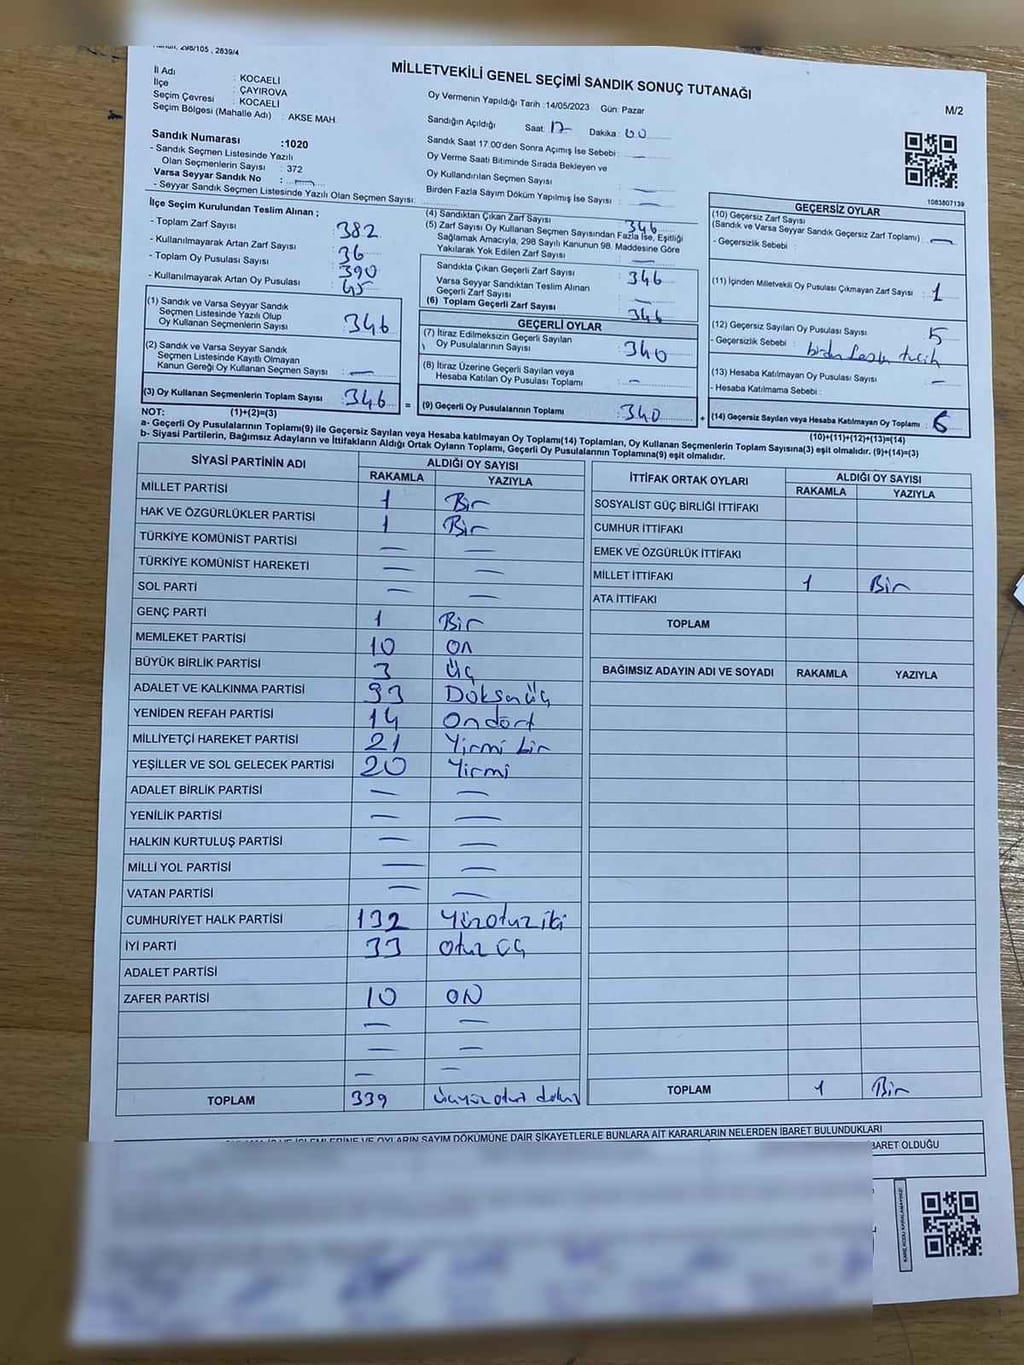 Kanun: 298/105 , 2839/4
MİLLETVEKİLİ GENEL SEÇİMİ SANDIK SONUÇ TUTANAĞI
M/2
İl Adı : KOCAELİ
İlçe : ÇAYIROVA
Seçim Çevresi : KOCAELİ
Seçim Bölgesi (Mahalle Adı) : AKSE MAH.
Sandık Numarası :1020
- Sandık Seçmen Listesinde Yazılı
Olan Seçmenlerin Sayısı : 372
Varsa Seyyar Sandık No : —
- Seyyar Sandık Seçmen Listesinde Yazılı Olan Seçmen Sayısı:
Oy Vermenin Yapıldığı Tarih :14/05/2023 Gün: Pazar
Sandığın Açıldığı Saat: 17 Dakika : 00
Sandık Saat 17.00'den Sonra Açımış İse Sebebi : —
Oy Verme Saati Bitiminde Sırada Bekleyen ve
Oy Kullandırılan Seçmen Sayısı : —
Birden Fazla Sayım Döküm Yapılmış İse Sayısı : —
1083807139
İlçe Seçim Kurulundan Teslim Alınan ;
- Toplam Zarf Sayısı : 382
- Kullanılmayarak Artan Zarf Sayısı : 36
- Toplam Oy Pusulası Sayısı : 390
- Kullanılmayarak Artan Oy Pusulası : 45
(1) Sandık ve Varsa Seyyar Sandık
Seçmen Listesinde Yazılı Olup
Oy Kullanan Seçmenlerin Sayısı : 346
(2) Sandık ve Varsa Seyyar Sandık
Seçmen Listesinde Kayıtlı Olmayan
Kanun Gereği Oy Kullanan Seçmen Sayısı : —
(3) Oy Kullanan Seçmenlerin Toplam Sayısı : 346
(4) Sandıktan Çıkan Zarf Sayısı : 346
(5) Zarf Sayısı Oy Kullanan Seçmen Sayısından Fazla İse, Eşitliği
Sağlamak Amacıyla, 298 Sayılı Kanunun 98. Maddesine Göre
Yakılarak Yok Edilen Zarf Sayısı : —
Sandıkta Çıkan Geçerli Zarf Sayısı : 346
Varsa Seyyar Sandıktan Teslim Alınan
Geçerli Zarf Sayısı : —
(6) Toplam Geçerli Zarf Sayısı : 346
GEÇERLİ OYLAR
(7) İtiraz Edilmeksizin Geçerli Sayılan
Oy Pusulalarının Sayısı : 340
(8) İtiraz Üzerine Geçerli Sayılan veya
Hesaba Katılan Oy Pusulası Toplamı : —
= (9) Geçerli Oy Pusulalarının Toplamı : 340
GEÇERSİZ OYLAR
(10) Geçersiz Zarf Sayısı
(Sandık ve Varsa Seyyar Sandık Geçersiz Zarf Toplamı) : —
- Geçersizlik Sebebi :
(11) İçinden Milletvekili Oy Pusulası Çıkmayan Zarf Sayısı : 1
(12) Geçersiz Sayılan Oy Pusulası Sayısı : 5
- Geçersizlik Sebebi : birden fazla tercih
(13) Hesaba Katılmayan Oy Pusulası Sayısı : —
- Hesaba Katılmama Sebebi :
+ (14) Geçersiz Sayılan veya Hesaba Katılmayan Oy Toplamı : 6
NOT: (1)+(2)=(3)
(10)+(11)+(12)+(13)=(14)
a- Geçerli Oy Pusulalarının Toplamı(9) ile Geçersiz Sayılan veya Hesaba katılmayan Oy Toplamı(14) Toplamları, Oy Kullanan Seçmenlerin Toplam Sayısına(3) eşit olmalıdır. (9)+(14)=(3)
b- Siyasi Partilerin, Bağımsız Adayların ve İttifakların Aldığı Ortak Oyların Toplamı, Geçerli Oy Pusulalarının Toplamına(9) eşit olmalıdır.
SİYASİ PARTİNİN ADI ALDIĞI OY SAYISI
RAKAMLA YAZIYLA
MİLLET PARTİSİ 1 Bir
HAK VE ÖZGÜRLÜKLER PARTİSİ 1 Bir
TÜRKİYE KOMÜNİST PARTİSİ — —
TÜRKİYE KOMÜNİST HAREKETİ — —
SOL PARTİ — —
GENÇ PARTİ 1 Bir
MEMLEKET PARTİSİ 10 on
BÜYÜK BİRLİK PARTİSİ 3 üç
ADALET VE KALKINMA PARTİSİ 93 Doksanüç
YENİDEN REFAH PARTİSİ 14 Ondört
MİLLİYETÇİ HAREKET PARTİSİ 21 Yirmi bir
YEŞİLLER VE SOL GELECEK PARTİSİ 20 Yirmi
ADALET BİRLİK PARTİSİ — —
YENİLİK PARTİSİ — —
HALKIN KURTULUŞ PARTİSİ — —
MİLLİ YOL PARTİSİ — —
VATAN PARTİSİ — —
CUMHURİYET HALK PARTİSİ 132 Yüzotuziki
İYİ PARTİ 33 Otuz üç
ADALET PARTİSİ
ZAFER PARTİSİ 10 ON
— —
— —
— —
TOPLAM 339 üçyüz otuz dokuz
İTTİFAK ORTAK OYLARI ALDIĞI OY SAYISI
RAKAMLA YAZIYLA
SOSYALİST GÜÇ BİRLİĞİ İTTİFAKI
CUMHUR İTTİFAKI
EMEK VE ÖZGÜRLÜK İTTİFAKI
MİLLET İTTİFAKI 1 Bir
ATA İTTİFAKI
TOPLAM
BAĞIMSIZ ADAYIN ADI VE SOYADI RAKAMLA YAZIYLA
TOPLAM 1 Bir
İŞLEMLERİNE VE OYLARIN SAYIM DÖKÜMÜNE DAİR ŞİKAYETLERLE BUNLARA AİT KARARLARIN NELERDEN İBARET BULUNDUKLARI
İBARET OLDUĞU
KARE KODU KARALAMAYINIZ!